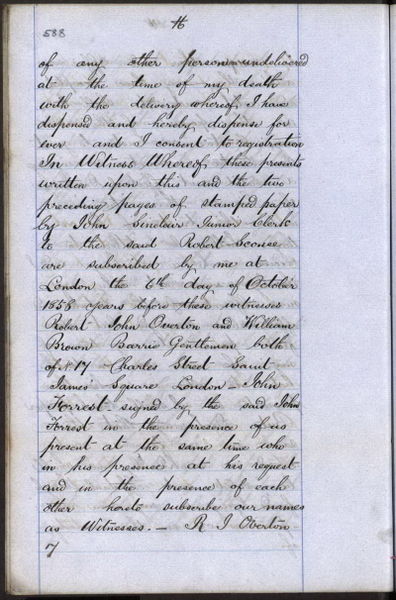 588
of any other person undelivered
at the time of my death
with the delivery whereof I have
dispensed and hereby dispense for
ever and I consent to registration
In Witness Whereof these presents
written upon this and the two
preceding pages of stamped paper
by John Sinclair Junior Clerk
to the said Robert
are subscribed by me at
London the 6th day of October
1858 years before these witnesses
Robert John Overton and William
Brown Barrie Gentlemen both
of No 17 Charles Street Saint
James' Square London - John
Forrest - signed by the said John
Forrest in the presence of us
present at the same time who
in his presence at his request
and in the presence of each
other hereto subscribe our names
as Witnesses. - R J Overton
7